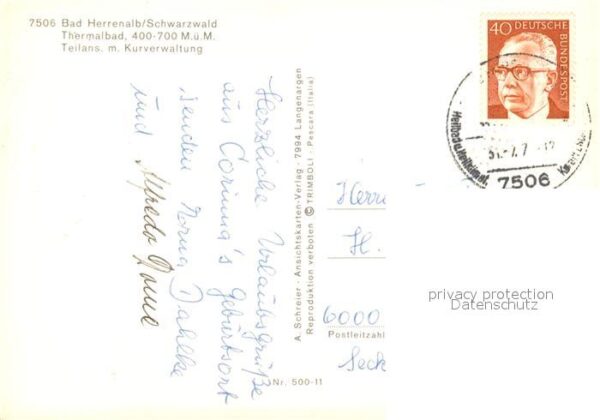 7506 Bad Herrenalb/Schwarzwald
Thermalbad, 400-700 M.ü.M.
Teilans. m. Kurverwaltung
Herzliche Urlaubsgrüße
aus Corinna's Geburtsort
senden Norma Dahlke
und Alfredo
A. Schreier · Ansichtskarten-Verlag · 7994 Langenargen
Reproduktion verboten © TRIMBOLI · Pescara (Italia)
Nr. 500-11
40 DEUTSCHE
BUNDESPOST
7506
Herrn
H.
6000
Postleitzahl
Seck
privacy protection
Datenschutz